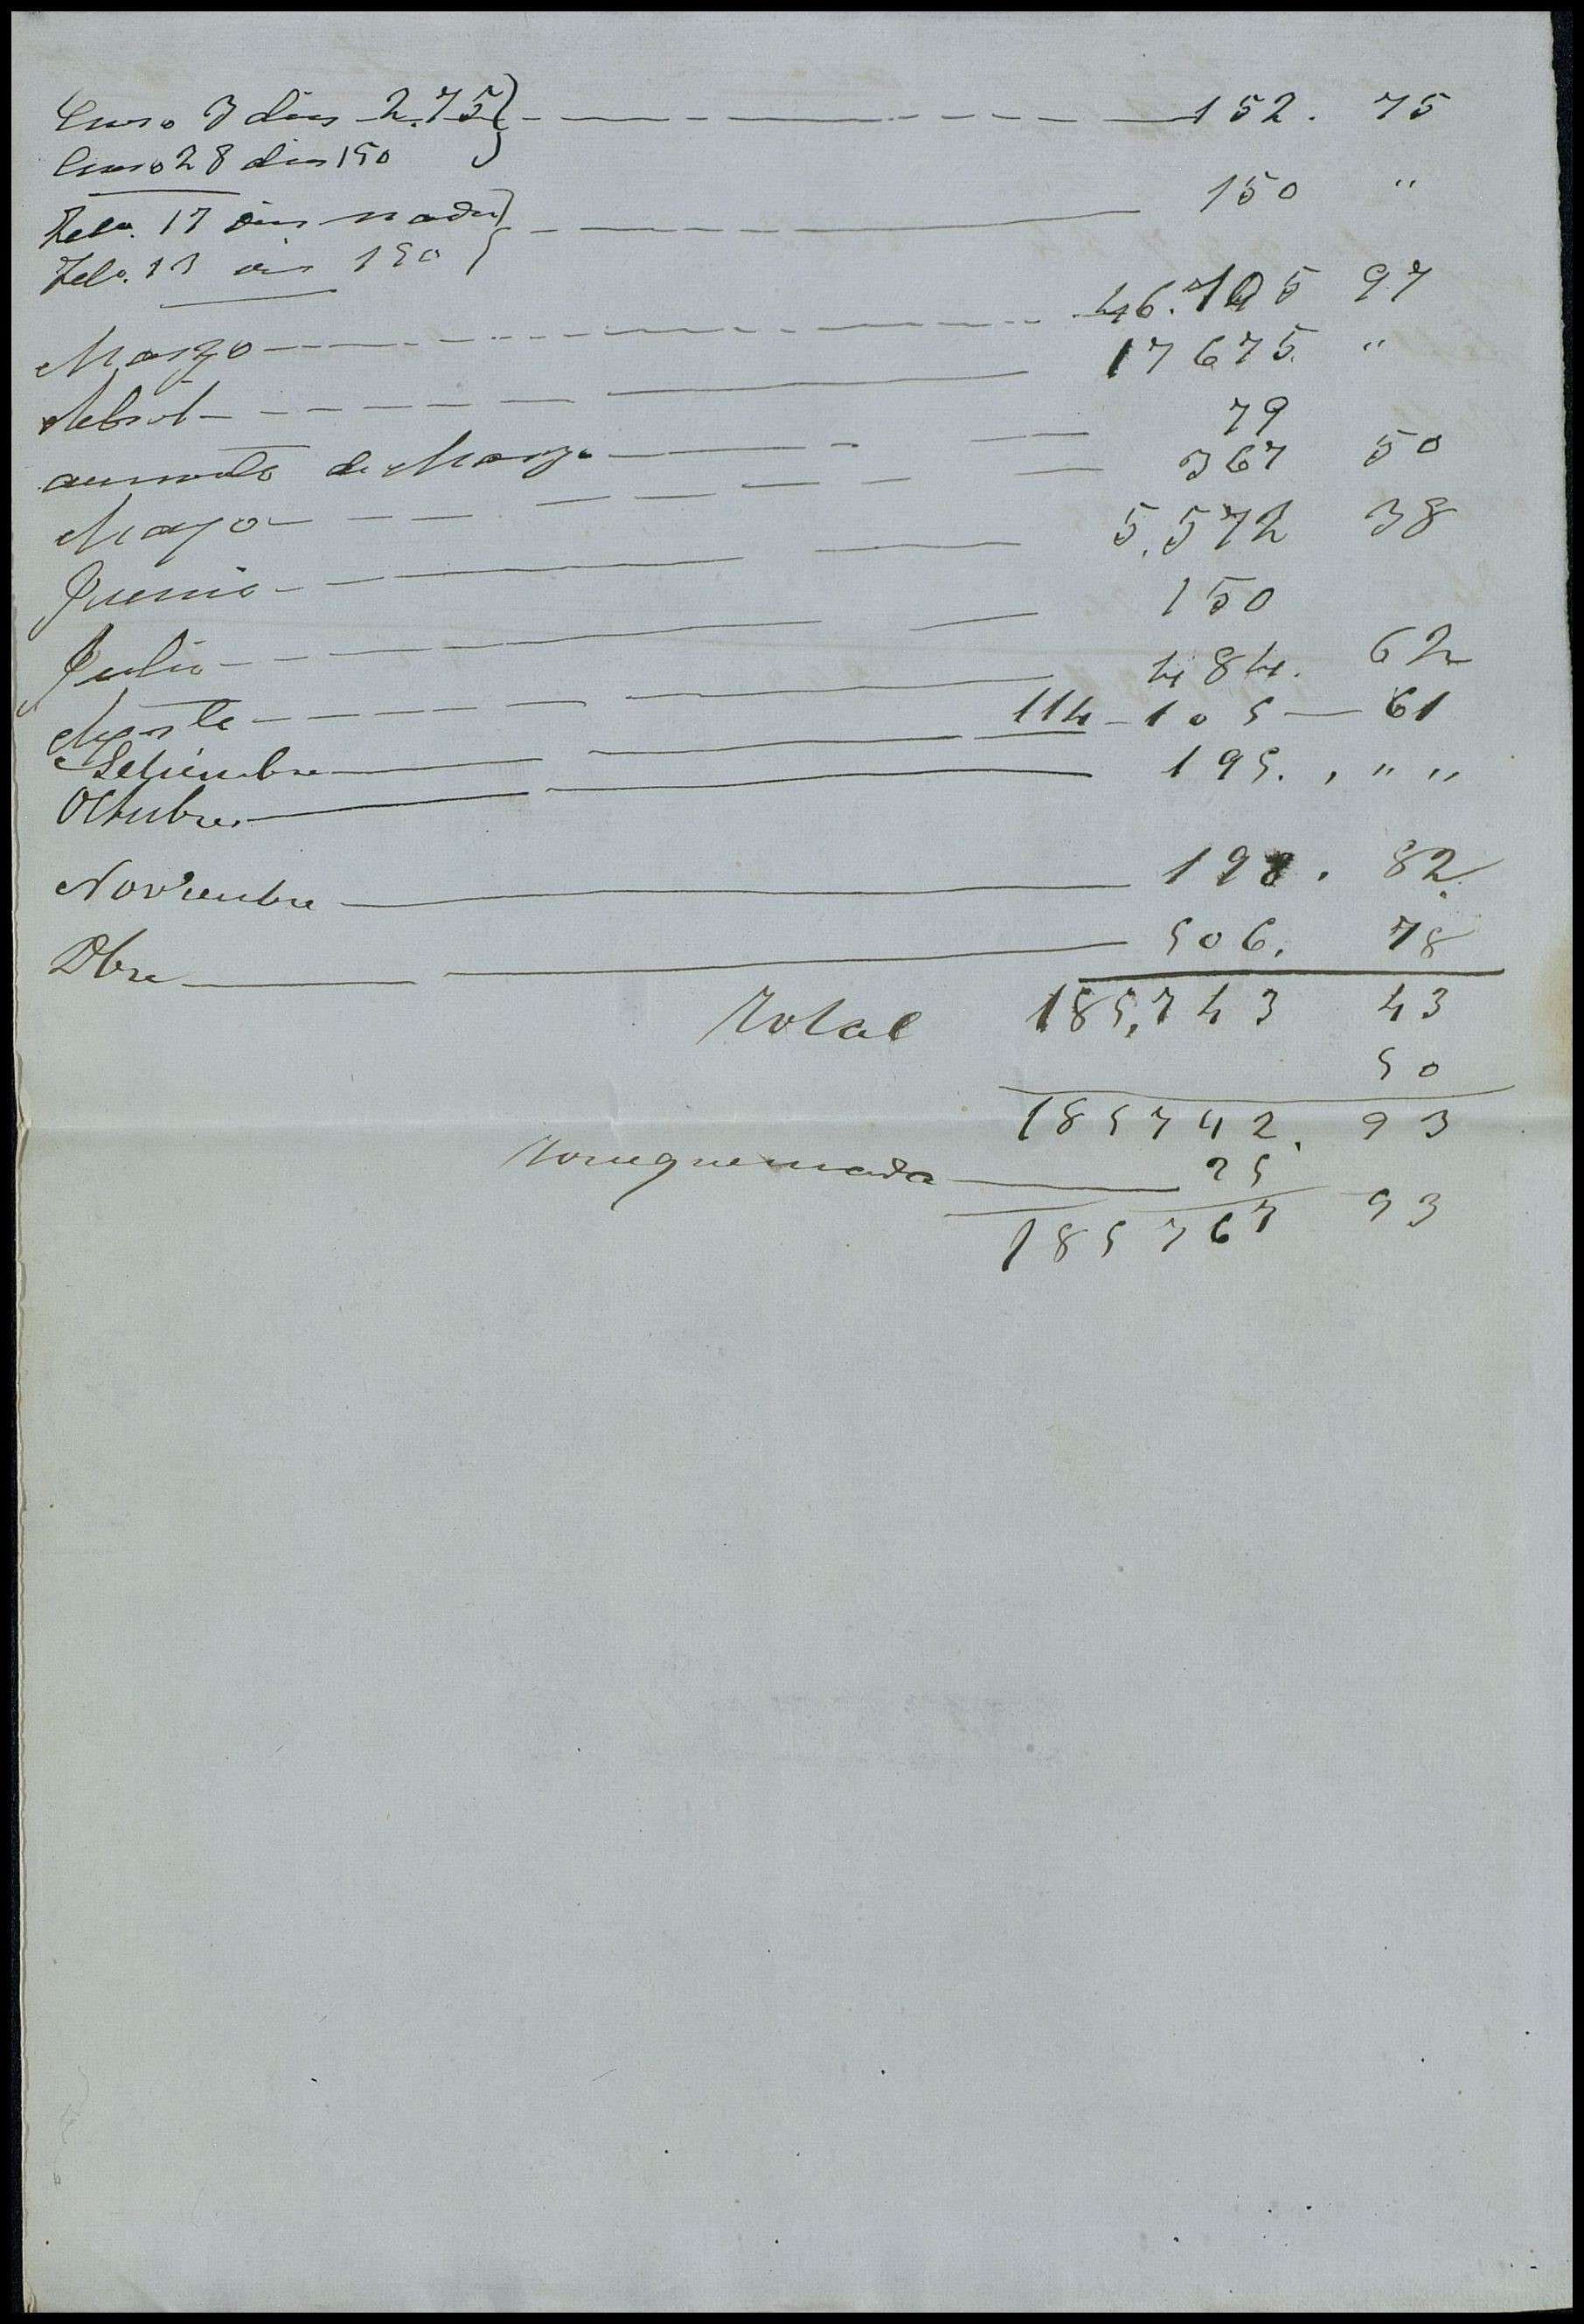 Enero 3 dias 2.75 152. 75
Enero 28 dias 150
Febo. 17 dias nada 150 "
Febo. 13 dias 150
Marzo 46.105 97
Abril 17675. "
aumento de Marzo 79
Mayo 367 50
Junio 5.572 38
Julio 150
Agosto 484. 62
Setiembre 114-105 — 61
Octubre 195. , " "
Noviembre 198. 82
Dbre 506. 78
Total 185,743 43
50
185742. 93
Torrequemada 25
185767 93